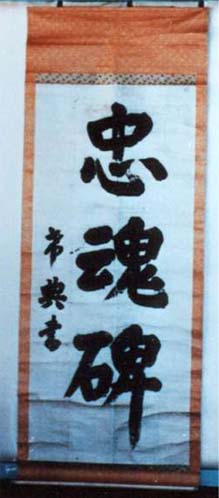 忠魂碑
常典書